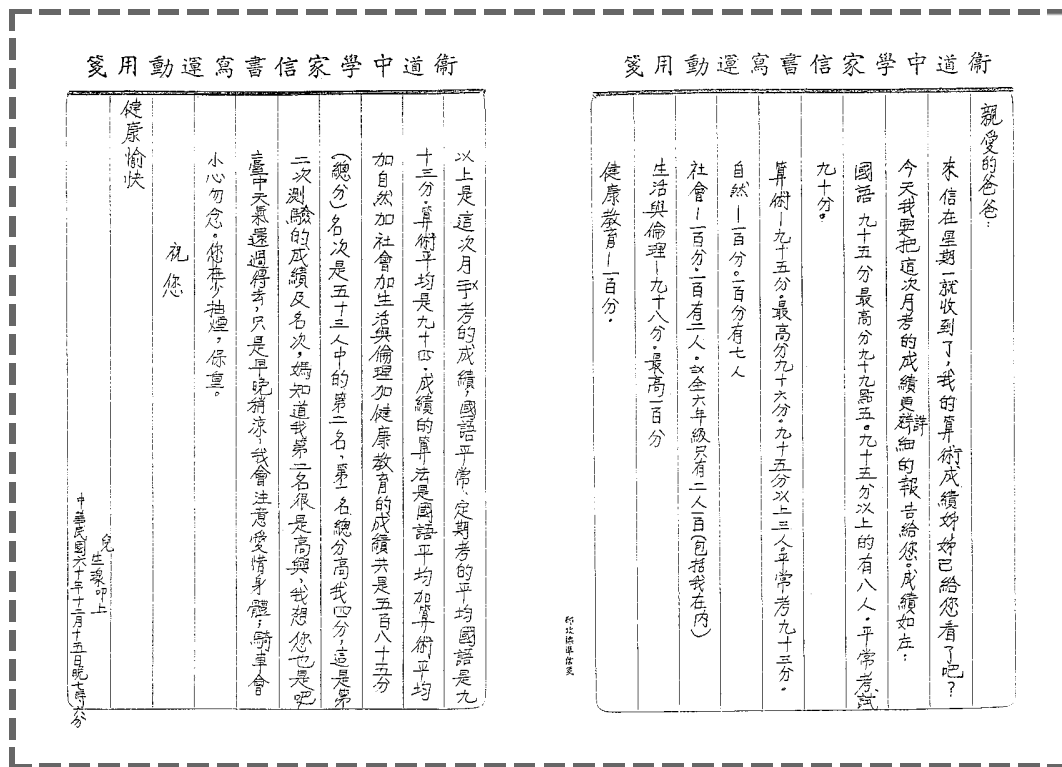 衞道中學家信書寫運動用箋
親愛的爸爸：
來信在星期一就收到了，我的算術成績姊姊已給您看了吧？
今天我要把這次月考的成績更詳細的報告給您。成績如左：
國語 九十五分最高分九十九點五。九十五分以上的有八人。平常考試
九十分。
算術—九十五分。最高分九十六分。九十五分以上三人。平常考九十三分。
自然—一百分。一百分有七人
社會—一百分。一百有二人。全六年級只有二人一百（包括我在內）
生活與倫理—九十八分。最高一百分
健康教育—一百分。
郵政標準信箋
衞道中學家信書寫運動用箋
以上是這次月考的成績，國語平常、定期考的平均國語是九
十三分。算術平均是九十四。成績的算法是國語平均加算術平均
加自然加社會加生活與倫理加健康教育的成績共是五百八十五分
（總分）名次是五十三人中的第二名，第一名總分高我四分，這是第
二次測驗的成績及名次，媽知道我第二名很是高興，我想您也是吧
臺中天氣還過得去，只是早晚稍涼，我會注意愛惜身體，騎車會
小心勿念。您少抽煙，保重。
祝您
健康愉快
兒
生 叩上
中華民國六十年十二月十五日晚七時六分